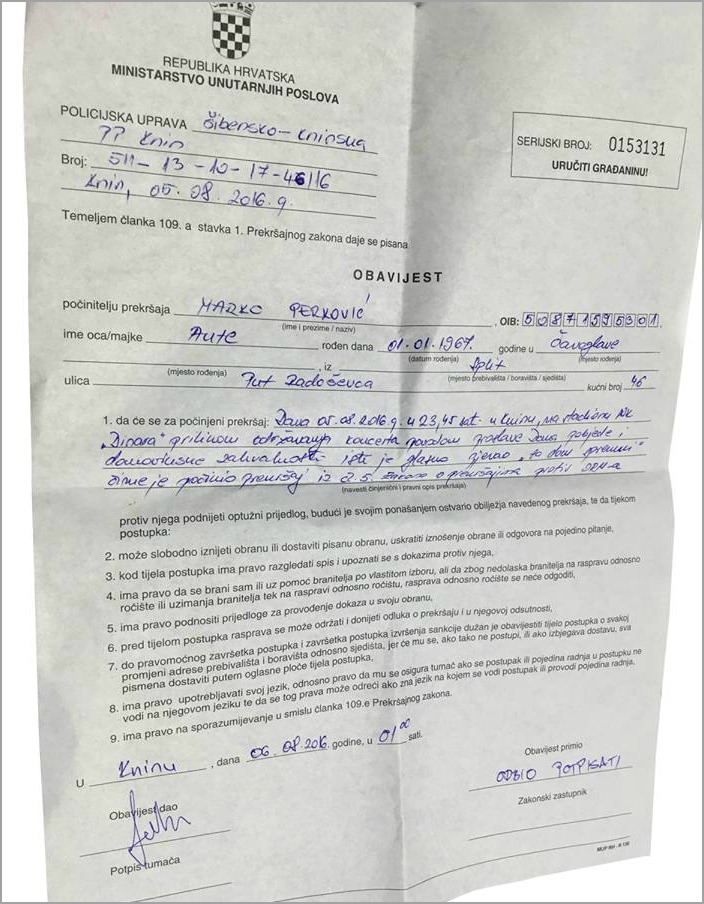 REPUBLIKA HRVATSKA
MINISTARSTVO UNUTARNJIH POSLOVA
POLICIJSKA UPRAVA Šibensko-Kninska
PP Knin
Broj: 511-13-10-17-46/16
Knin, 05. 08. 2016. g.
SERIJSKI BROJ: 0153131
URUČITI GRAĐANINU!
Temeljem članka 109. a stavka 1. Prekršajnog zakona daje se pisana
OBAVIJEST
počinitelju prekršaja MARKO PERKOVIĆ, OIB: 50871595301.
(ime i prezime / naziv)
ime oca/majke Ante rođen dana 01.01.1967. godine u Čavoglave
(datum rođenja) (mjesto rođenja)
, iz Split
(mjesto rođenja) (mjesto prebivališta / boravišta / sjedišta)
ulica Put Radoševca kućni broj 46
1. da će se za počinjeni prekršaj: Dana 05.08.2016.g. u 23,45 sati u Kninu, na stadionu NK
"Dinara" prilikom održavanja koncerta povodom proslave Dana pobjede i
domovinske zahvalnosti isti je glasno pjevao "za dom spremni"
čime je počinio prekršaj iz čl.5. Zakona o prekršajima protiv JRM-a
(navesti činjenični i pravni opis prekršaja)
protiv njega podnijeti optužni prijedlog, budući je svojim ponašanjem ostvario obilježja navedenog prekršaja, te da tijekom
postupka:
2. može slobodno iznijeti obranu ili dostaviti pisanu obranu, uskratiti iznošenje obrane ili odgovora na pojedino pitanje,
3. kod tijela postupka ima pravo razgledati spis i upoznati se s dokazima protiv njega,
4. ima pravo da se brani sam ili uz pomoć branitelja po vlastitom izboru, ali da zbog nedolaska branitelja na raspravu odnosno
ročište ili uzimanja branitelja tek na raspravi odnosno ročištu, rasprava odnosno ročište se neće odgoditi,
5. ima pravo podnositi prijedloge za provođenje dokaza u svoju obranu,
6. pred tijelom postupka rasprava se može održati i donijeti odluka o prekršaju i u njegovoj odsutnosti,
7. do pravomoćnog završetka postupka i završetka postupka izvršenja sankcije dužan je obavijestiti tijelo postupka o svakoj
promjeni adrese prebivališta i boravišta odnosno sjedišta, jer će mu se, ako tako ne postupi, ili ako izbjegava dostavu, sva
pismena dostaviti putem oglasne ploče tijela postupka,
8. ima pravo upotrebljavati svoj jezik, odnosno pravo da mu se osigura tumač ako se postupak ili pojedina radnja u postupku ne
vodi na njegovom jeziku te da se tog prava može odreći ako zna jezik na kojem se vodi postupak ili provodi pojedina radnja,
9. ima pravo na sporazumijevanje u smislu članka 109.e Prekršajnog zakona.
U Kninu, dana 06.08.2016. godine, u 01 00 sati.
Obavijest dao
Potpis tumača
Obavijest primio
ODBIO POTPISATI
Zakonski zastupnik